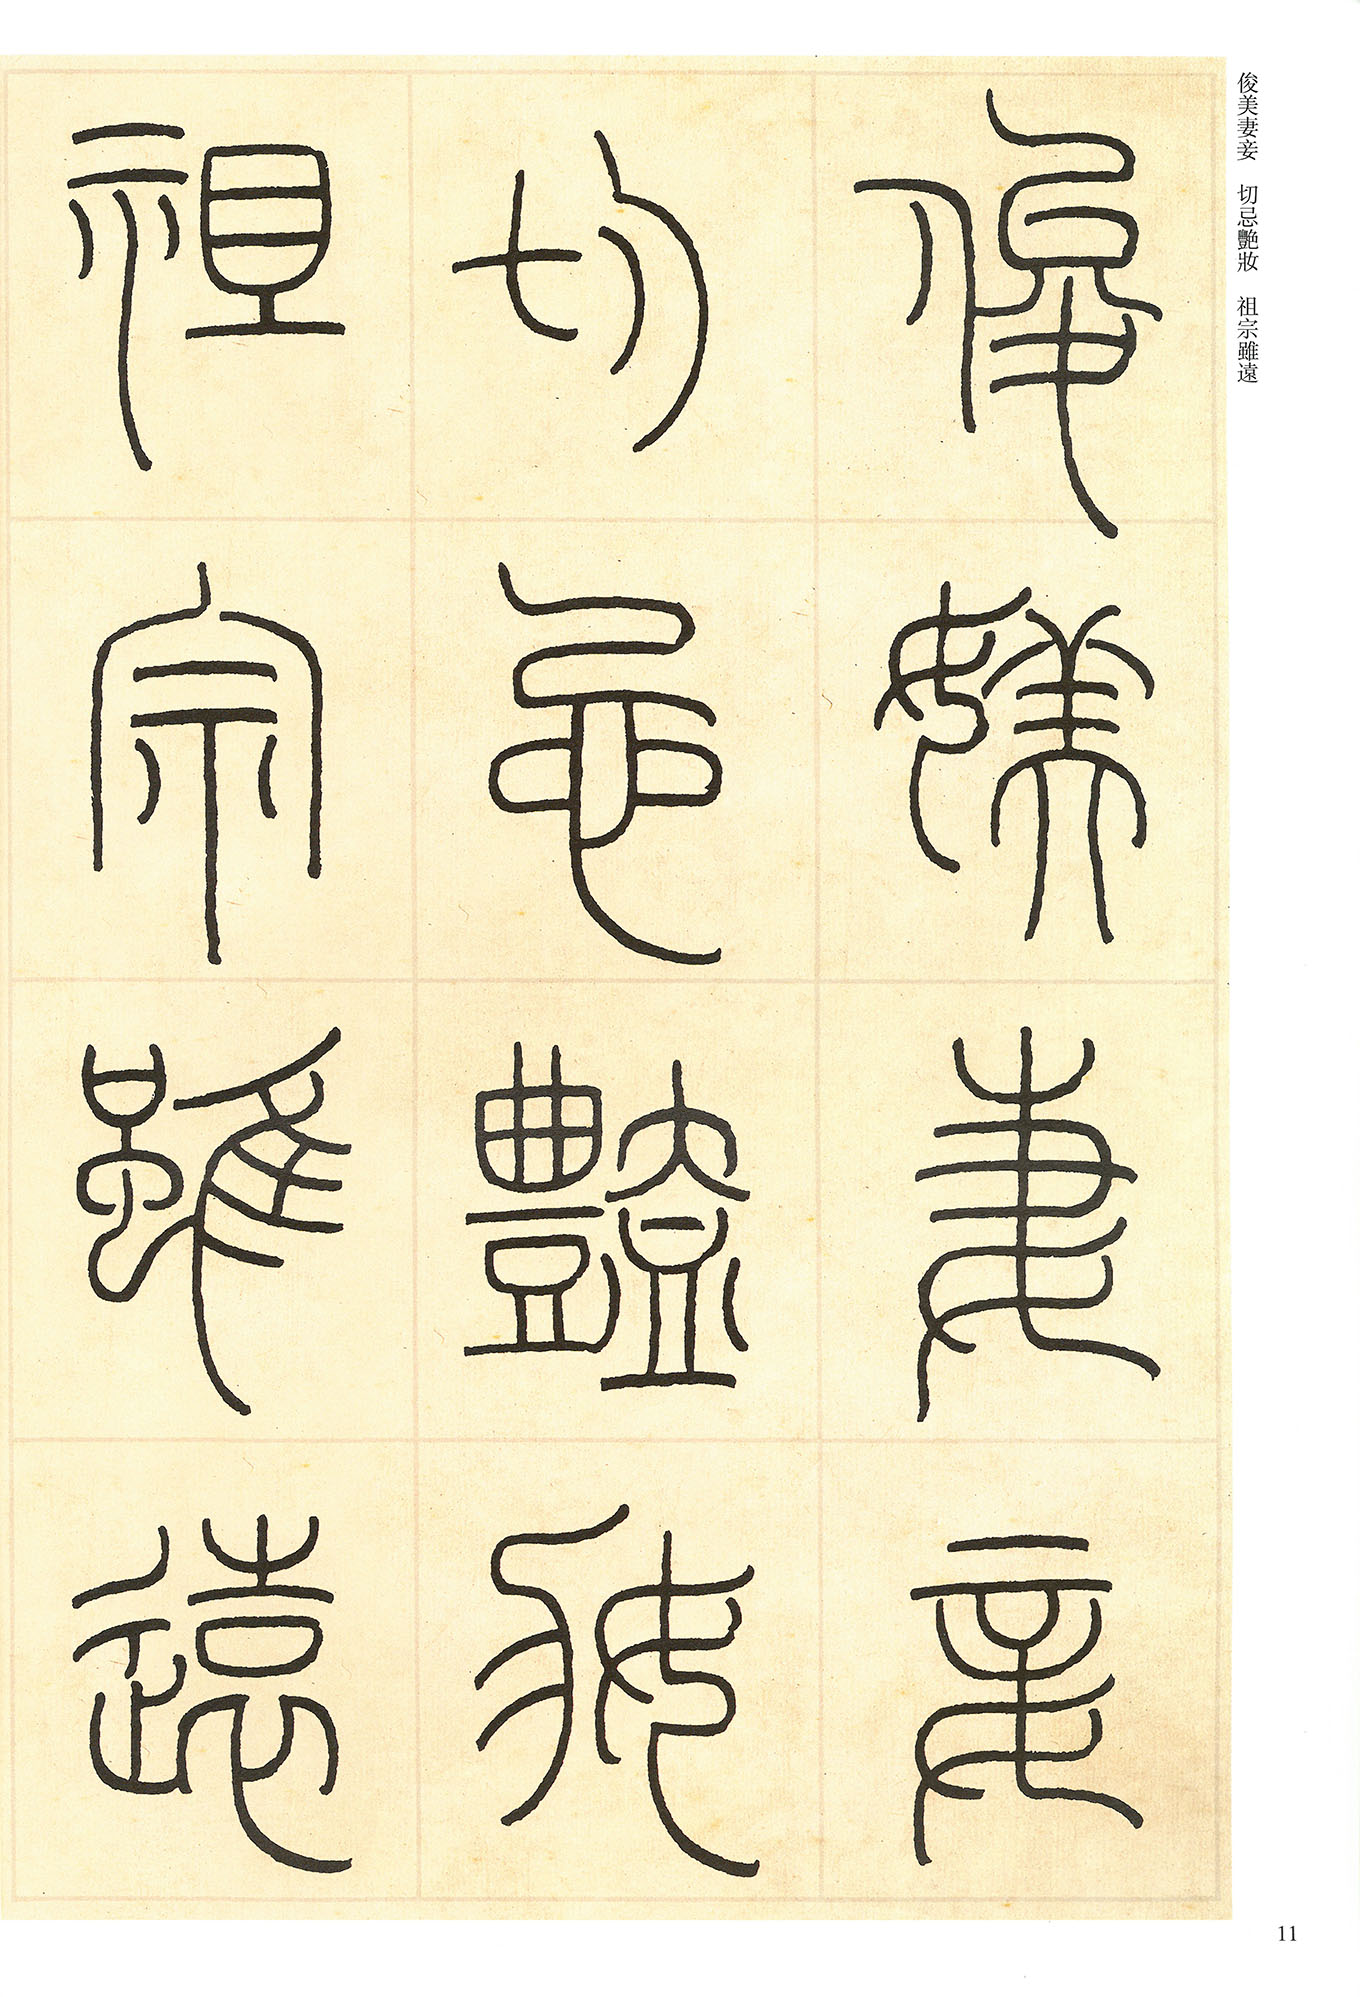 俊美妻妾　切忌艷妝　祖宗雖遠
俊媄妻妾
切忌豔妝
祖宗雖遠
11